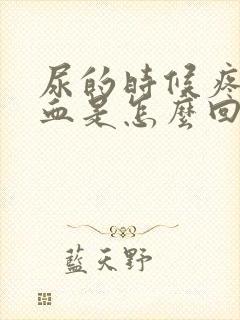 尿的時候疼
血是怎麼回
藍天野